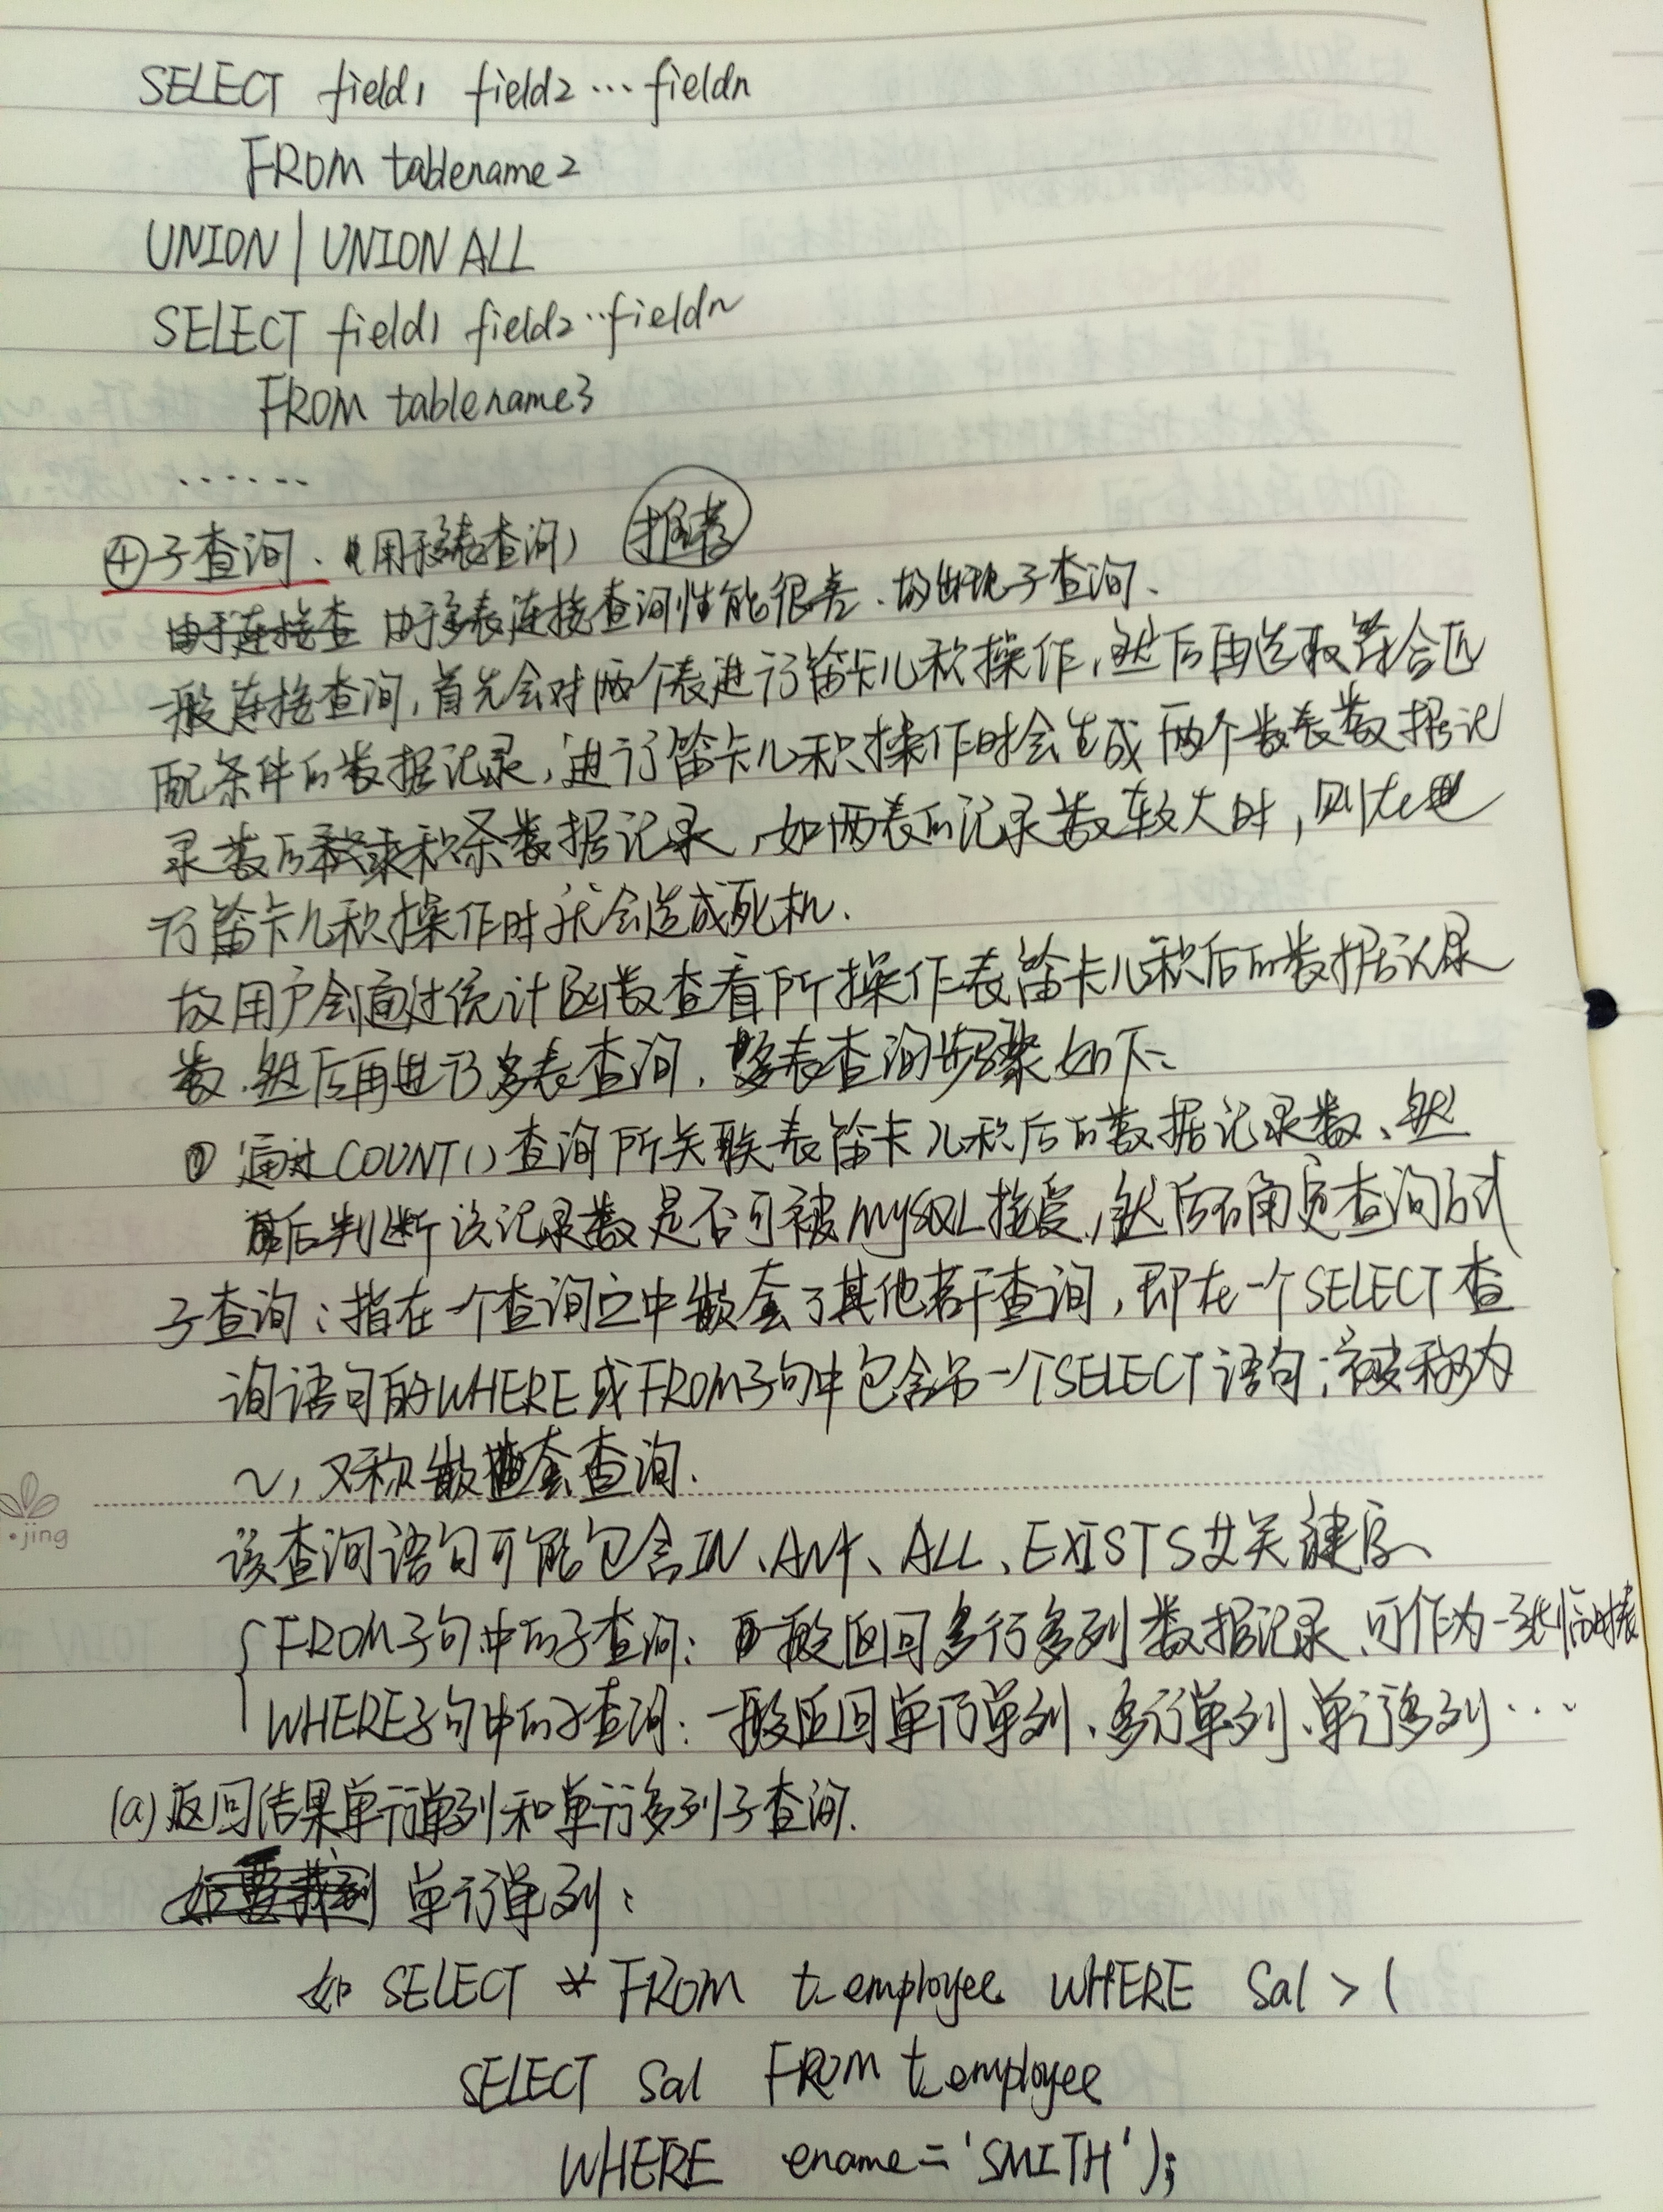 SELECT field1 field2 … fieldn
FROM tablename2
UNION | UNION ALL
SELECT field1 field2 … fieldn
FROM tablename3
……
④子查询.(用于多表查询) 推荐
由于多表连接查询性能很差、故出现子查询.
一般连接查询,首先会对两个表进行笛卡儿积操作,然后再选取符合匹
配条件的数据记录,进行笛卡儿积操作时会生成两个数表数据记
录数的乘积条数据记录,如两表的记录数较大时,则在进
行笛卡儿积操作时就会造成死机.
故用户会通过统计函数查看所操作表笛卡儿积后的数据记录
数.然后再进行多表查询,多表查询步骤如下:
① 通过COUNT()查询所关联表笛卡儿积后的数据记录数、然
后判断该记录数是否可被MySQL接受,然后确定查询方式
子查询:指在一个查询之中嵌套了其他若干查询,即在一个SELECT查
询语句的WHERE或FROM子句中包含另一个SELECT语句;被称为
~,又称嵌套查询.
该查询语句可能包含IN、ANY、ALL、EXISTS等关键字、
FROM子句中的子查询:一般返回多行多列数据记录,可作为一张临时表
WHERE子句中的子查询:一般返回单行单列、多行单列、单行多列…
(a)返回结果单行单列和单行多列子查询.
单行单列:
如 SELECT * FROM t_employee WHERE Sal > (
SELECT Sal FROM t_employee
WHERE ename='SMITH');
jing